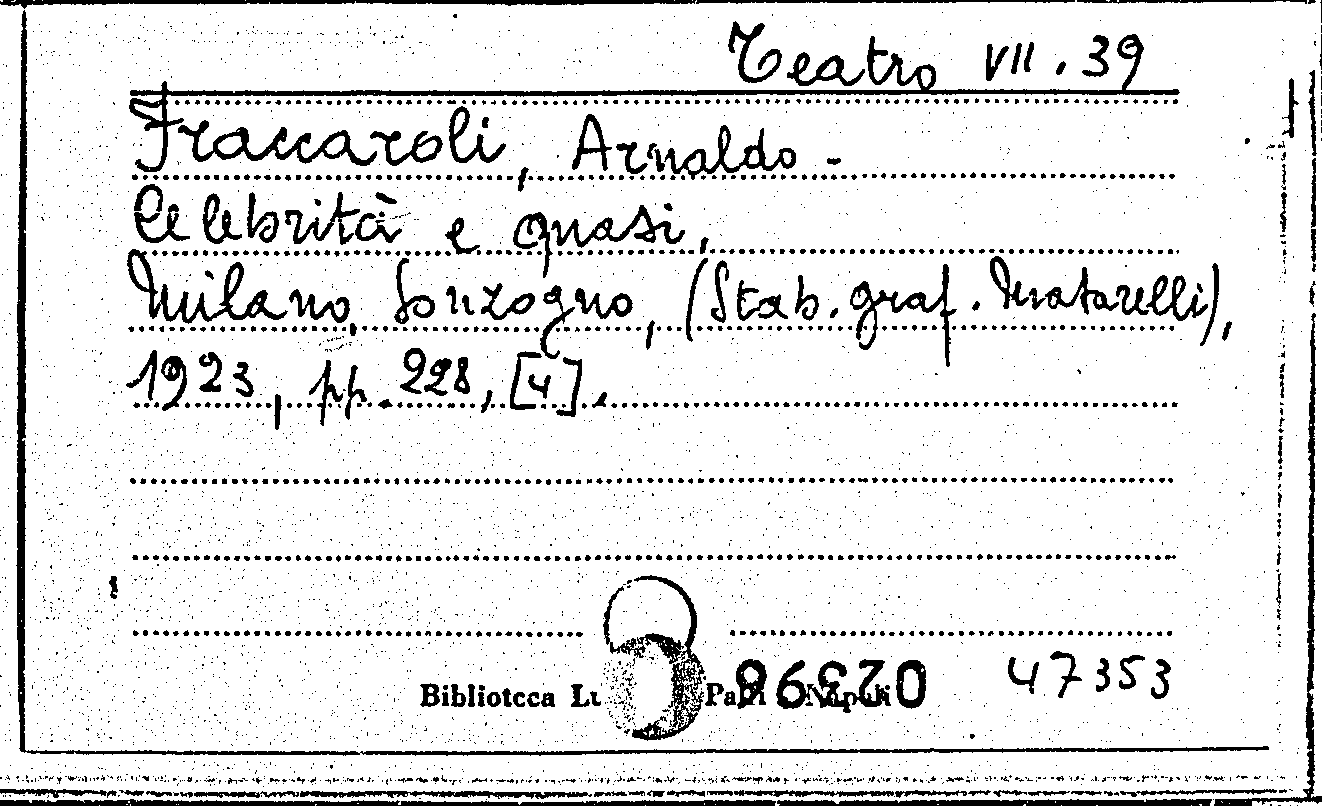 Teatro VII. 39
Fraccaroli, Arnaldo -
Celebrità e quasi,
Milano, Sonzogno, (Stab. graf. Matarelli),
1923, pp. 228, [4].
Biblioteca
47353